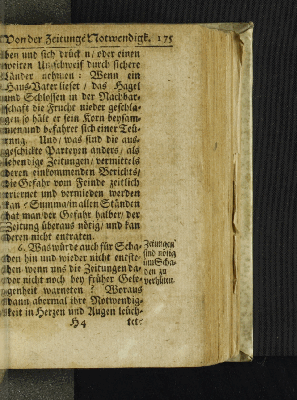 Von der Zeitungs Notwendigk. 175
ben und sich drücken / oder einen
weiten Umschweif durch sichere
Länder nehmen: Wenn ein
Haus-Vater lieset / daß Hagel
und Schlossen in der Nachbar-
schaft die Frucht nieder geschla-
gen / so hält er sein Korn beysam-
men und befahret sich einer Teu-
rung. Und / was sind die aus-
geschickte Parteyen anders / als
lebendige Zeitungen / vermittels
deren einkommenden Berichts /
die Gefahr vom Feinde zeitlich
erlernet und vermieden werden
kan? Summa / in allen Ständen
hat man / der Gefahr halber / der
Zeitung überaus nötig / und kan
deren nicht entraten.
6. Was würde auch für Scha-
den hin und wieder nicht entste-
hen wenn uns die Zeitungen da-
vor nicht noch bey früher Gele-
genheit warneten? Woraus
dann abermal ihre Notwendig-
keit in Hertzen und Augen leuch-
H 4 tet:
Zeitungen
sind nötig
üm Scha-
den zu
verhüten.